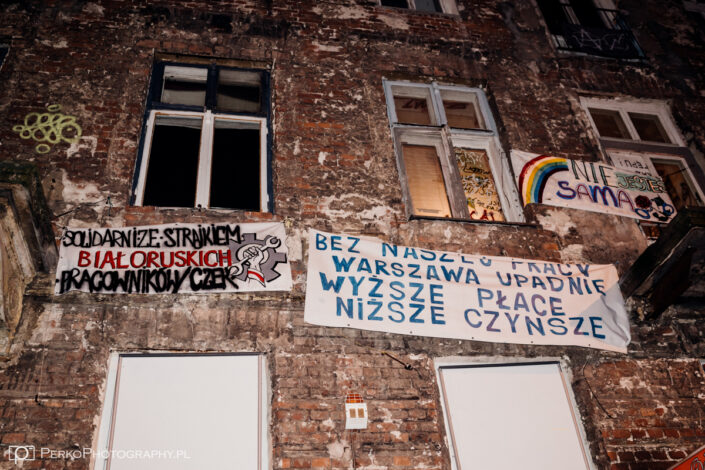 SOLIDARNIZE STRAJKIEM
BIAŁORUSKICH
PRACOWNIKÓW/CZEK
BEZ NASZEJ PRACY
WARSZAWA UPADNIE
WYŻSZE PŁACE
NIŻSZE CZYNSZE
NIE JESTEŚ
SAMA
PERKOPHOTOGRAPHY.PL